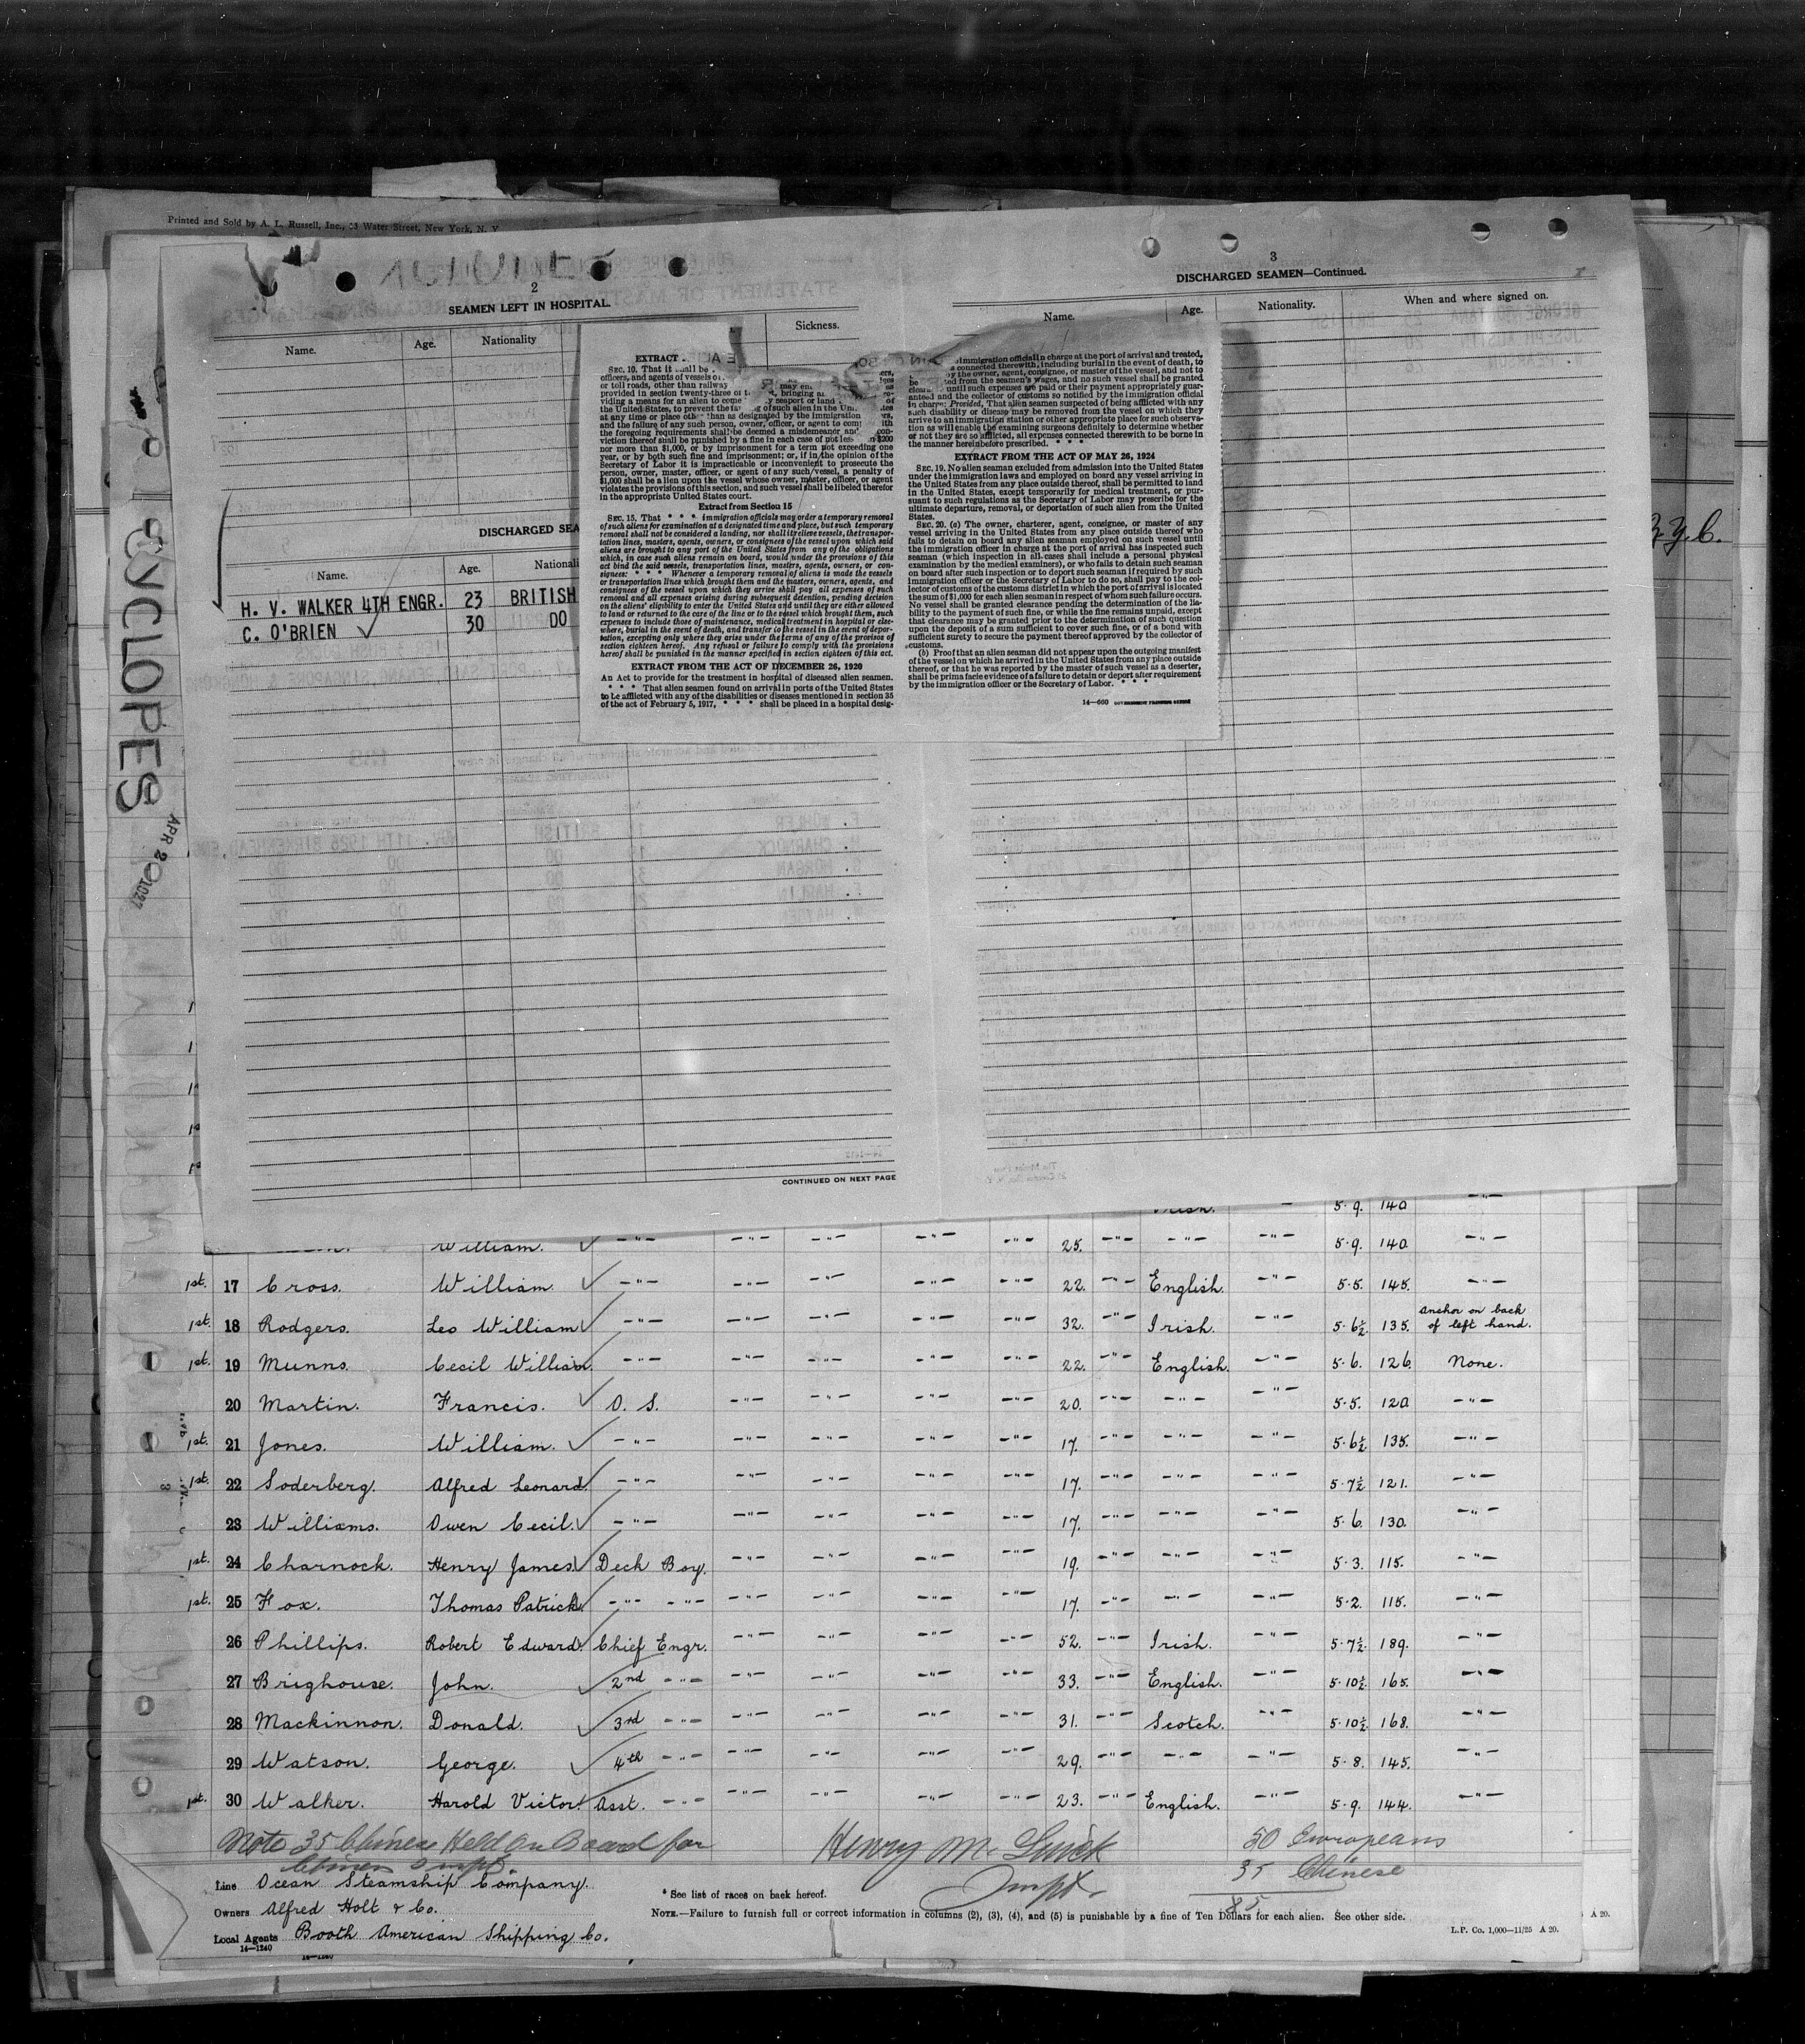 Printed and Sold by A. L. Russell, Inc., 33 Water Street, New York, N. Y.
2
SEAMEN LEFT IN HOSPITAL.
Name. Age. Nationality Sickness.
DISCHARGED SEA
Name. Age. Nationali
H. V. WALKER 4TH ENGR. 23 BRITISH
C. O'BRIEN 30 DO
CONTINUED ON NEXT PAGE
3
DISCHARGED SEAMEN—Continued.
Name. Age. Nationality. When and where signed on.
CYCLOPES
APR 20 1927
EXTRACT
SEC. 10. That it shall be
officers, and agents of vessels of
or toll roads, other than railway may en
provided in section twenty-three of t bringing a
viding a means for an alien to come y seaport or land
the United States, to prevent the la g of such alien in the Uni tes
at any time or place other than as designated by the immigration rs,
and the failure of any such person, owner, officer, or agent to com ith
the foregoing requirements shall be deemed a misdemeanor and con-
viction thereof shall be punished by a fine in each case of not less n $200
nor more than $1,000, or by imprisonment for a term not exceeding one
year, or by both such fine and imprisonment; or, if in the opinion of the
Secretary of Labor it is impracticable or inconvenient to prosecute the
person, owner, master, officer, or agent of any such vessel, a penalty of
$1,000 shall be a lien upon the vessel whose owner, master, officer, or agent
violates the provisions of this section, and such vessel shall be libeled therefor
in the appropriate United States court.
Extract from Section 15
SEC. 15. That * * * immigration officials may order a temporary removal
of such aliens for examination at a designated time and place, but such temporary
removal shall not be considered a landing, nor shall it relieve vessels, the transpor-
tation lines, masters, agents, owners, or consignees of the vessel upon which said
aliens are brought to any port of the United States from any of the obligations
which, in case such aliens remain on board, would under the provisions of this
act bind the said vessels, transportation lines, masters, agents, owners, or con-
signees: * * * Whenever a temporary removal of aliens is made the vessels
or transportation lines which brought them and the masters, owners, agents, and
consignees of the vessel upon which they arrive shall pay all expenses of such
removal and all expenses arising during subsequent detention, pending decision
on the aliens' eligibility to enter the United States and until they are either allowed
to land or returned to the care of the line or to the vessel which brought them, such
expenses to include those of maintenance, medical treatment in hospital or else-
where, burial in the event of death, and transfer to the vessel in the event of depor-
tation, excepting only where they arise under the terms of any of the provisos of
section eighteen hereof. Any refusal or failure to comply with the provisions
hereof shall be punished in the manner specified in section eighteen of this act.
EXTRACT FROM THE ACT OF DECEMBER 26, 1920
An Act to provide for the treatment in hospital of diseased alien seamen.
* * * That alien seamen found on arrival in ports of the United States
to be afflicted with any of the disabilities or diseases mentioned in section 35
of the act of February 5, 1917, * * * shall be placed in a hospital desig-
immigration official in charge at the port of arrival and treated,
s connected therewith, including burial in the event of death, to
by the owner, agent, consignee, or master of the vessel, and not to
be ted from the seamen's wages, and no such vessel shall be granted
clear until such expenses are paid or their payment appropriately guar-
anteed and the collector of customs so notified by the immigration official
in charge: Provided, That alien seamen suspected of being afflicted with any
such disability or disease may be removed from the vessel on which they
arrive to an immigration station or other appropriate place for such observa-
tion as will enable the examining surgeons definitely to determine whether
or not they are so afflicted, all expenses connected therewith to be borne in
the manner hereinbefore prescribed. * * *
EXTRACT FROM THE ACT OF MAY 26, 1924
SEC. 19. No alien seaman excluded from admission into the United States
under the immigration laws and employed on board any vessel arriving in
the United States from any place outside thereof, shall be permitted to land
in the United States, except temporarily for medical treatment, or pur-
suant to such regulations as the Secretary of Labor may prescribe for the
ultimate departure, removal, or deportation of such alien from the United
States.
SEC. 20. (a) The owner, charterer, agent, consignee, or master of any
vessel arriving in the United States from any place outside thereof who
fails to detain on board any alien seaman employed on such vessel until
the immigration officer in charge at the port of arrival has inspected such
seaman (which inspection in all cases shall include a personal physical
examination by the medical examiners), or who fails to detain such seaman
on board after such inspection or to deport such seaman if required by such
immigration officer or the Secretary of Labor to do so, shall pay to the col-
lector of customs of the customs district in which the port of arrival is located
the sum of $1,000 for each alien seaman in respect of whom such failure occurs.
No vessel shall be granted clearance pending the determination of the lia-
bility to the payment of such fine, or while the fine remains unpaid, except
that clearance may be granted prior to the determination of such question
upon the deposit of a sum sufficient to cover such fine, or of a bond with
sufficient surety to secure the payment thereof approved by the collector of
customs.
(b) Proof that an alien seaman did not appear upon the outgoing manifest
of the vessel on which he arrived in the United States from any place outside
thereof, or that he was reported by the master of such vessel as a deserter,
shall be prima facie evidence of a failure to detain or deport after requirement
by the immigration officer or the Secretary of Labor. * * *
14—660 GOVERNMENT PRINTING OFFICE
Irish. 5·9. 140
William. —"— —"— —"— —"— —"— 25. —"— —"— —"— 5·9. 140 —"—
1st. 17 Cross. William. —"— —"— —"— —"— —"— 22. —"— English. —"— 5·5. 145. —"—
1st. 18 Rodgers. Leo William —"— —"— —"— —"— —"— 32. —"— Irish. —"— 5·6½ 135. anchor on back of left hand.
1st. 19 Munns. Cecil William. —"— —"— —"— —"— —"— 22. —"— English. —"— 5·6. 126. None.
20 Martin. Francis. O. S. —"— —"— —"— —"— 20. —"— —"— —"— 5·5. 120. —"—
1st. 21 Jones. William. —"— —"— —"— —"— —"— 17. —"— —"— —"— 5·6½ 135. —"—
1st. 22 Soderberg. Alfred Leonard —"— —"— —"— —"— —"— 17. —"— —"— —"— 5·7½ 121. —"—
23 Williams. Owen Cecil. —"— —"— —"— —"— —"— 17. —"— —"— —"— 5·6. 130. —"—
1st. 24 Charnock. Henry James Deck Boy. —"— —"— —"— —"— 19. —"— —"— —"— 5·3. 115. —"—
1st. 25 Fox. Thomas Patrick —"— —"— —"— —"— —"— —"— 17. —"— —"— —"— 5·2. 115. —"—
26 Phillips. Robert Edward. Chief Engr. —"— —"— —"— —"— 52. —"— Irish. —"— 5·7½ 189. —"—
27 Brighouse. John. 2nd —"— —"— —"— —"— —"— 33. —"— English. —"— 5·10½ 165. —"—
28 Mackinnon. Donald. 3rd —"— —"— —"— —"— —"— 31. —"— Scotch. —"— 5·10½ 168. —"—
29 Watson. George. 4th —"— —"— —"— —"— —"— 29. —"— —"— —"— 5·8. 145. —"—
1st. 30 Walker. Harold Victor. Asst. —"— —"— —"— —"— —"— 23. —"— English. —"— 5·9. 144. —"—
Note 35 Chinese Held on Board for
Chinese Inspt.
Henry M.
Inspt.
50 Europeans
35 Chinese
85
Line Ocean Steamship Company.
Owners Alfred Holt & Co.
Local Agents Booth American Shipping Co.
14—1240
* See list of races on back hereof.
NOTE.—Failure to furnish full or correct information in columns (2), (3), (4), and (5) is punishable by a fine of Ten Dollars for each alien. See other side.
L.P. Co. 1,000—11/25 A 20.
A 20.